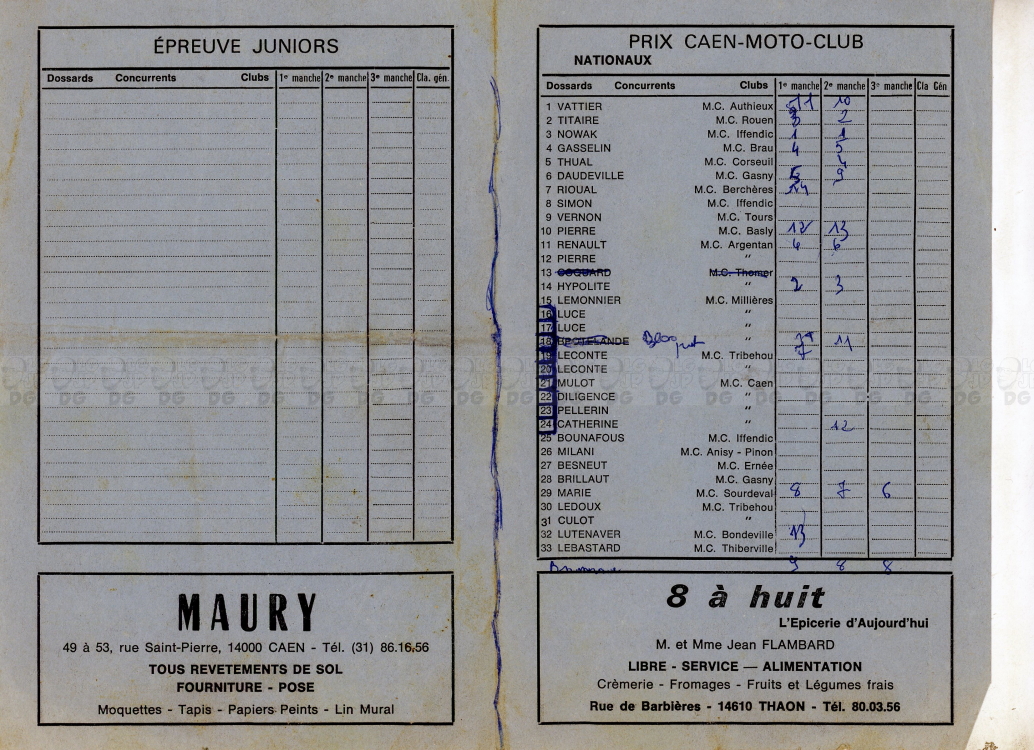 ÉPREUVE JUNIORS
Dossards Concurrents Clubs 1e manche 2e manche 3e manche Cla. gén.
MAURY
49 à 53, rue Saint-Pierre, 14000 CAEN - Tél. (31) 86.16.56
TOUS REVETEMENTS DE SOL
FOURNITURE - POSE
Moquettes - Tapis - Papiers Peints - Lin Mural
PRIX CAEN-MOTO-CLUB
NATIONAUX
Dossards Concurrents Clubs 1e manche 2e manche 3e manche Cla Gén
1 VATTIER M.C. Authieux 11 10
2 TITAIRE M.C. Rouen 3 2
3 NOWAK M.C. Iffendic 1 1
4 GASSELIN M.C. Brau 4 5
5 THUAL M.C. Corseuil 4
6 DAUDEVILLE M.C. Gasny 5 9
7 RIOUAL M.C. Berchères 14
8 SIMON M.C. Iffendic
9 VERNON M.C. Tours
10 PIERRE M.C. Basly 12 13
11 RENAULT M.C. Argentan 6 6
12 PIERRE "
13 COQUARD M.C. Thomer
14 HYPOLITE " 2 3
15 LEMONNIER M.C. Millières
16 LUCE "
17 LUCE "
18 BROTELANDE " 11
19 LECONTE M.C. Tribehou 7
20 LECONTE "
21 MULOT M.C. Caen
22 DILIGENCE "
23 PELLERIN "
24 CATHERINE " 12
25 BOUNAFOUS M.C. Iffendic
26 MILANI M.C. Anisy - Pinon
27 BESNEUT M.C. Ernée
28 BRILLAUT M.C. Gasny
29 MARIE M.C. Sourdeval 8 7 6
30 LEDOUX M.C. Tribehou
31 CULOT "
32 LUTENAVER M.C. Bondeville 13
33 LEBASTARD M.C. Thiberville
9 8 8
8 à huit
L'Epicerie d'Aujourd'hui
M. et Mme Jean FLAMBARD
LIBRE - SERVICE — ALIMENTATION
Crèmerie - Fromages - Fruits et Légumes frais
Rue de Barbières - 14610 THAON - Tél. 80.03.56